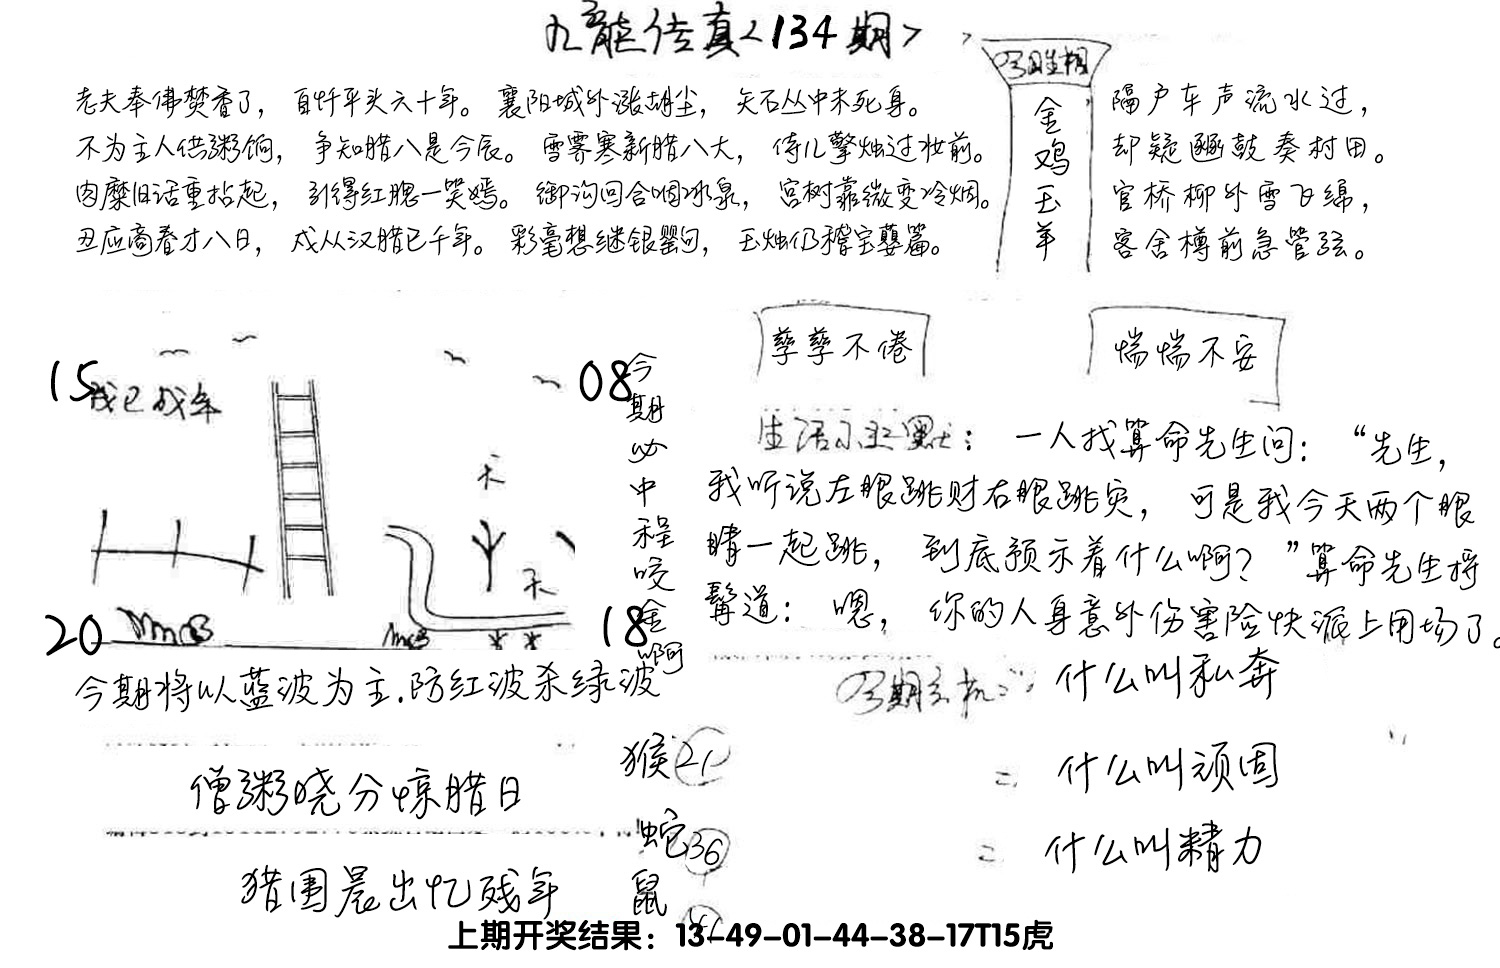 九龙传真<134期>
老夫奉佛焚香了，百忏平头六十年。襄阳城外涨胡尘，矢石丛中未死身。
不为主人供粥饷，争知腊八是今辰。雪霁寒新腊八天，侍儿擎烛过妆前。
肉糜旧话重拈起，引得红腮一笑嫣。御沟回合咽冰泉，宫树霏微变冷烟。
丑应商春才八日，戌从汉腊已千年。彩毫想继银罂句，玉烛仍稽宝蘖篇。
金鸡玉羊
隔户车声流水过，
却疑豳鼓奏村田。
官桥柳外雪飞绵，
客舍樽前急管弦。
孳孳不倦
惴惴不安
15
我已成年
08
天
天
20
18
今期必中程咬金啊
今期将以蓝波为主.防红波杀绿波
生活小幽默：一人找算命先生问：“先生，
我听说左眼跳财右眼跳灾，可是我今天两个眼
睛一起跳，到底预示着什么啊？”算命先生捋
髯道：嗯，你的人身意外伤害险快派上用场了。
今期玄机：什么叫私奔
什么叫顽固
什么叫精力
僧粥晓分惊腊日
猎围晨出忆残年
猴21
蛇36
鼠
上期开奖结果：13-49-01-44-38-17T15虎